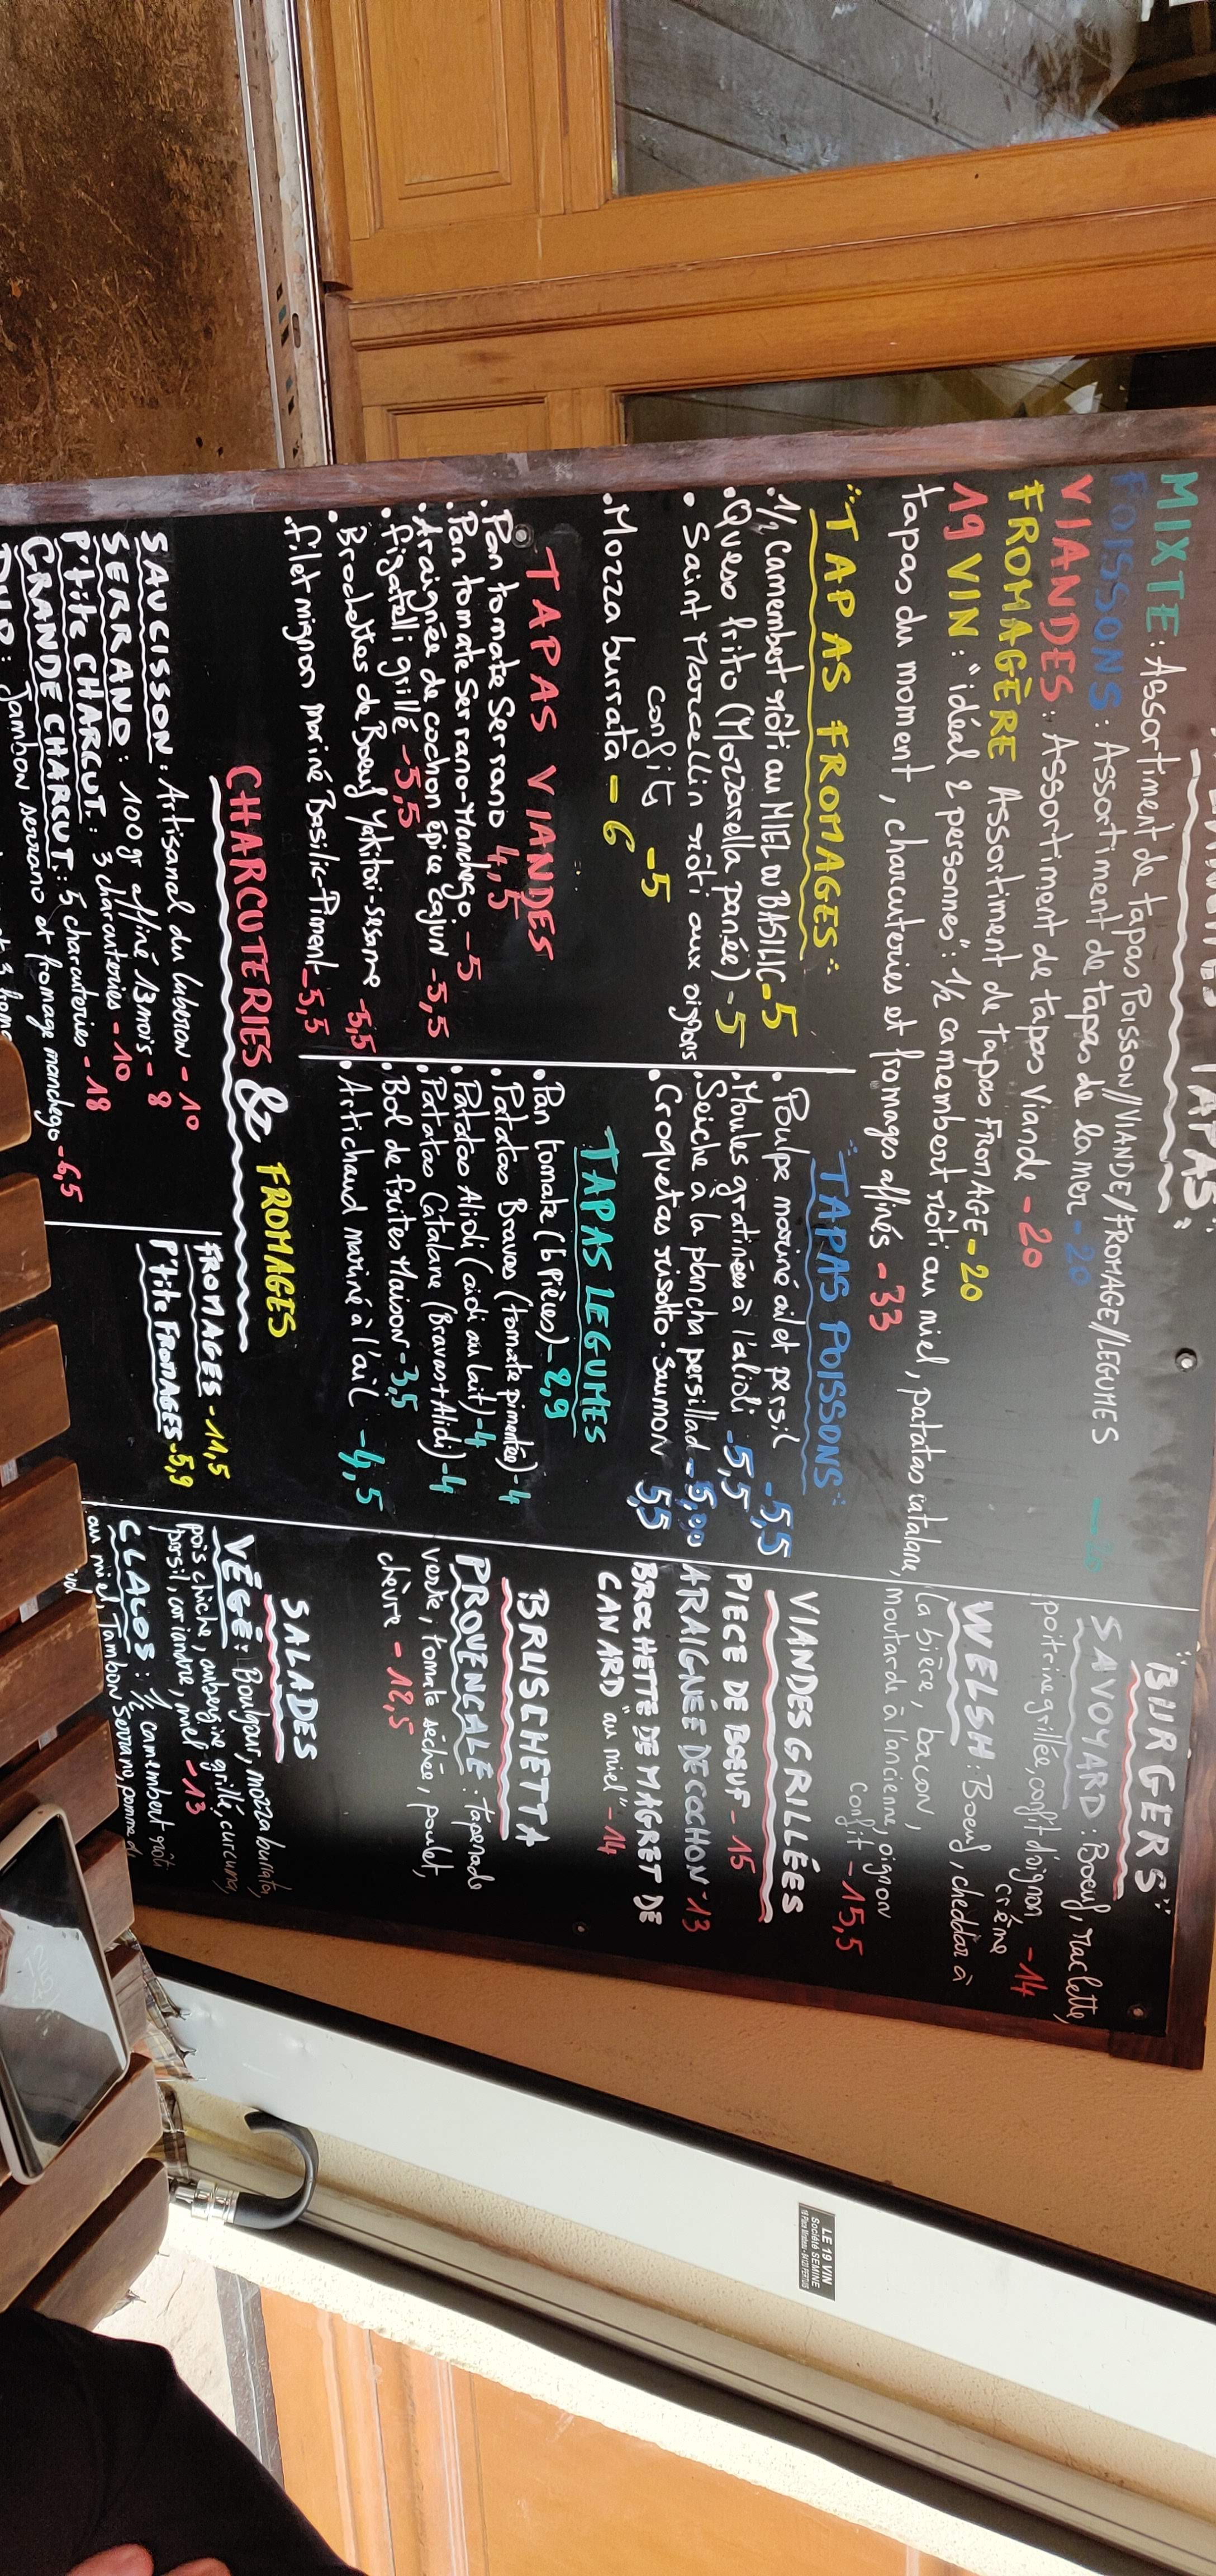 TAPAS"
MIXTE : Assortiment de tapas Poisson//VIANDE/FROMAGE//LEGUMES
POISSONS : Assortiment de tapas de la mer - 20
VIANDES : Assortiment de tapas Viande - 20
FROMAGÈRE Assortiment de tapas FROMAGE - 20
19 VIN : "idéal 2 personnes" : 1/2 camembert rôti au miel, patatas catalane,
tapas du moment, charcuteries et fromages affinés - 33
TAPAS FROMAGES
. 1/2 Camembert rôti au MIEL ou BASILIC - 5
. Queso frito (Mozzarella panée) - 5
. Saint Marcellin rôti aux oignons
confits - 5
. Mozza burrata - 6
TAPAS VIANDES
. Pan tomate Serrano 4,5
. Pan tomate Serrano-Manchego - 5
. Araignée de cochon épice Cajun - 5,5
. figatelli grillé - 5,5
. Brochettes de Boeuf Yakitori-sesame - 5,5
. filet mignon mariné Basilic-Piment - 5,5
"TAPAS POISSONS"
. Poulpe mariné ail et persil - 5,5
. Moules gratinées à l'alioli - 5,5
. Seiche à la plancha persillad
. Croquetas risotto - Saumon 5,5
TAPAS LEGUMES
. Pan tomate (6 Pièces) - 2,9
. Patatas Bravas (tomate pimentée) - 4
. Patatas Alioli (aioli au lait) - 4
. Patatas Catalane (Bravas + Alioli) - 4
. Bol de frites Maison - 3,5
. Artichaud mariné à l'ail - 4,5
CHARCUTERIES & FROMAGES
SAUCISSON : Artisanal du luberon - 10
SERRANO : 100gr affiné 13 mois - 8
P'tite CHARCUT : 3 charcuteries - 10
GRANDE CHARCUT : 5 charcuteries - 18
Jambon serrano et fromage manchego - 6,5
FROMAGES - 11,5
P'tite FROMAGES - 5,9
"BURGERS"
SAVOYARD : Boeuf, raclette,
poitrine grillée, confit d'oignon,
crème - 14
WELSH : Boeuf, cheddar à
la bière, bacon,
moutarde à l'ancienne, oignon
confit - 15,5
VIANDES GRILLÉES
PIECE DE BOEUF - 15
ARAIGNÉE DE COCHON - 13
BROCHETTE DE MAGRET DE
CANARD "au miel" - 14
BRUSCHETTA
PROVENCALE : tapenade
verte, tomate séchée, poulet,
chèvre - 12,5
SALADES
VÉGÉ : Boulgour, mozza burrata,
pois chiche, aubergine grillé, curcuma,
persil, coriandre, miel - 13
CLACOS : 1/2 camembert rôti
au miel, Jambon Serrano, pomme d
LE 19 VIN
Société SEMINE